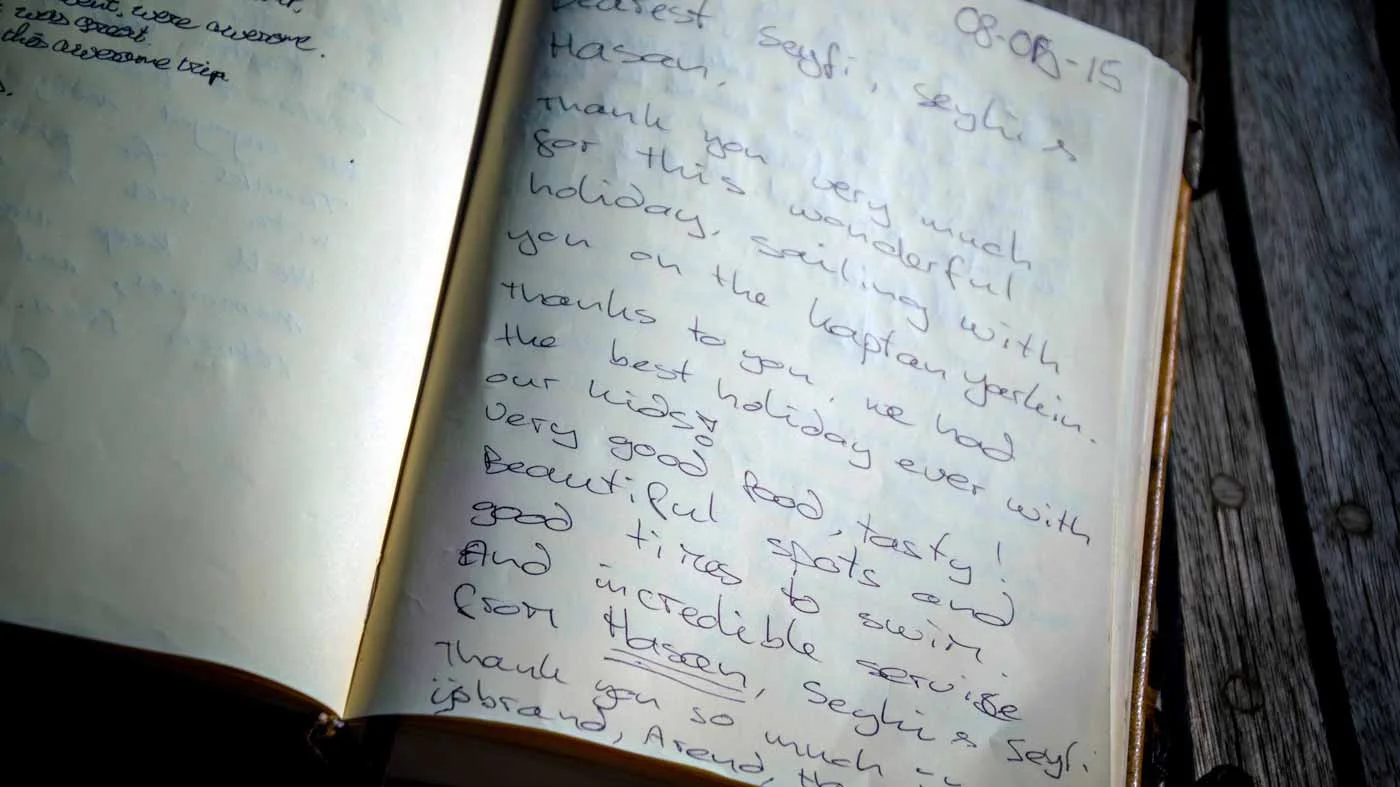 were awesome.
was great.
this awesome trip
08-08-15
Dearest Seyfi, Seyhis &
Hasan,
Thank you very much
for this wonderful
holiday, sailing with
you on the kaptan yarkin.
thanks to you, we had
the best holiday ever with
our kids,
very good food, tasty!
Beautiful spots and
good times to swim.
And incredible servise
from Hasan, Seyhis & Seyfi.
Thank you so much
ijsbrand, Arend,